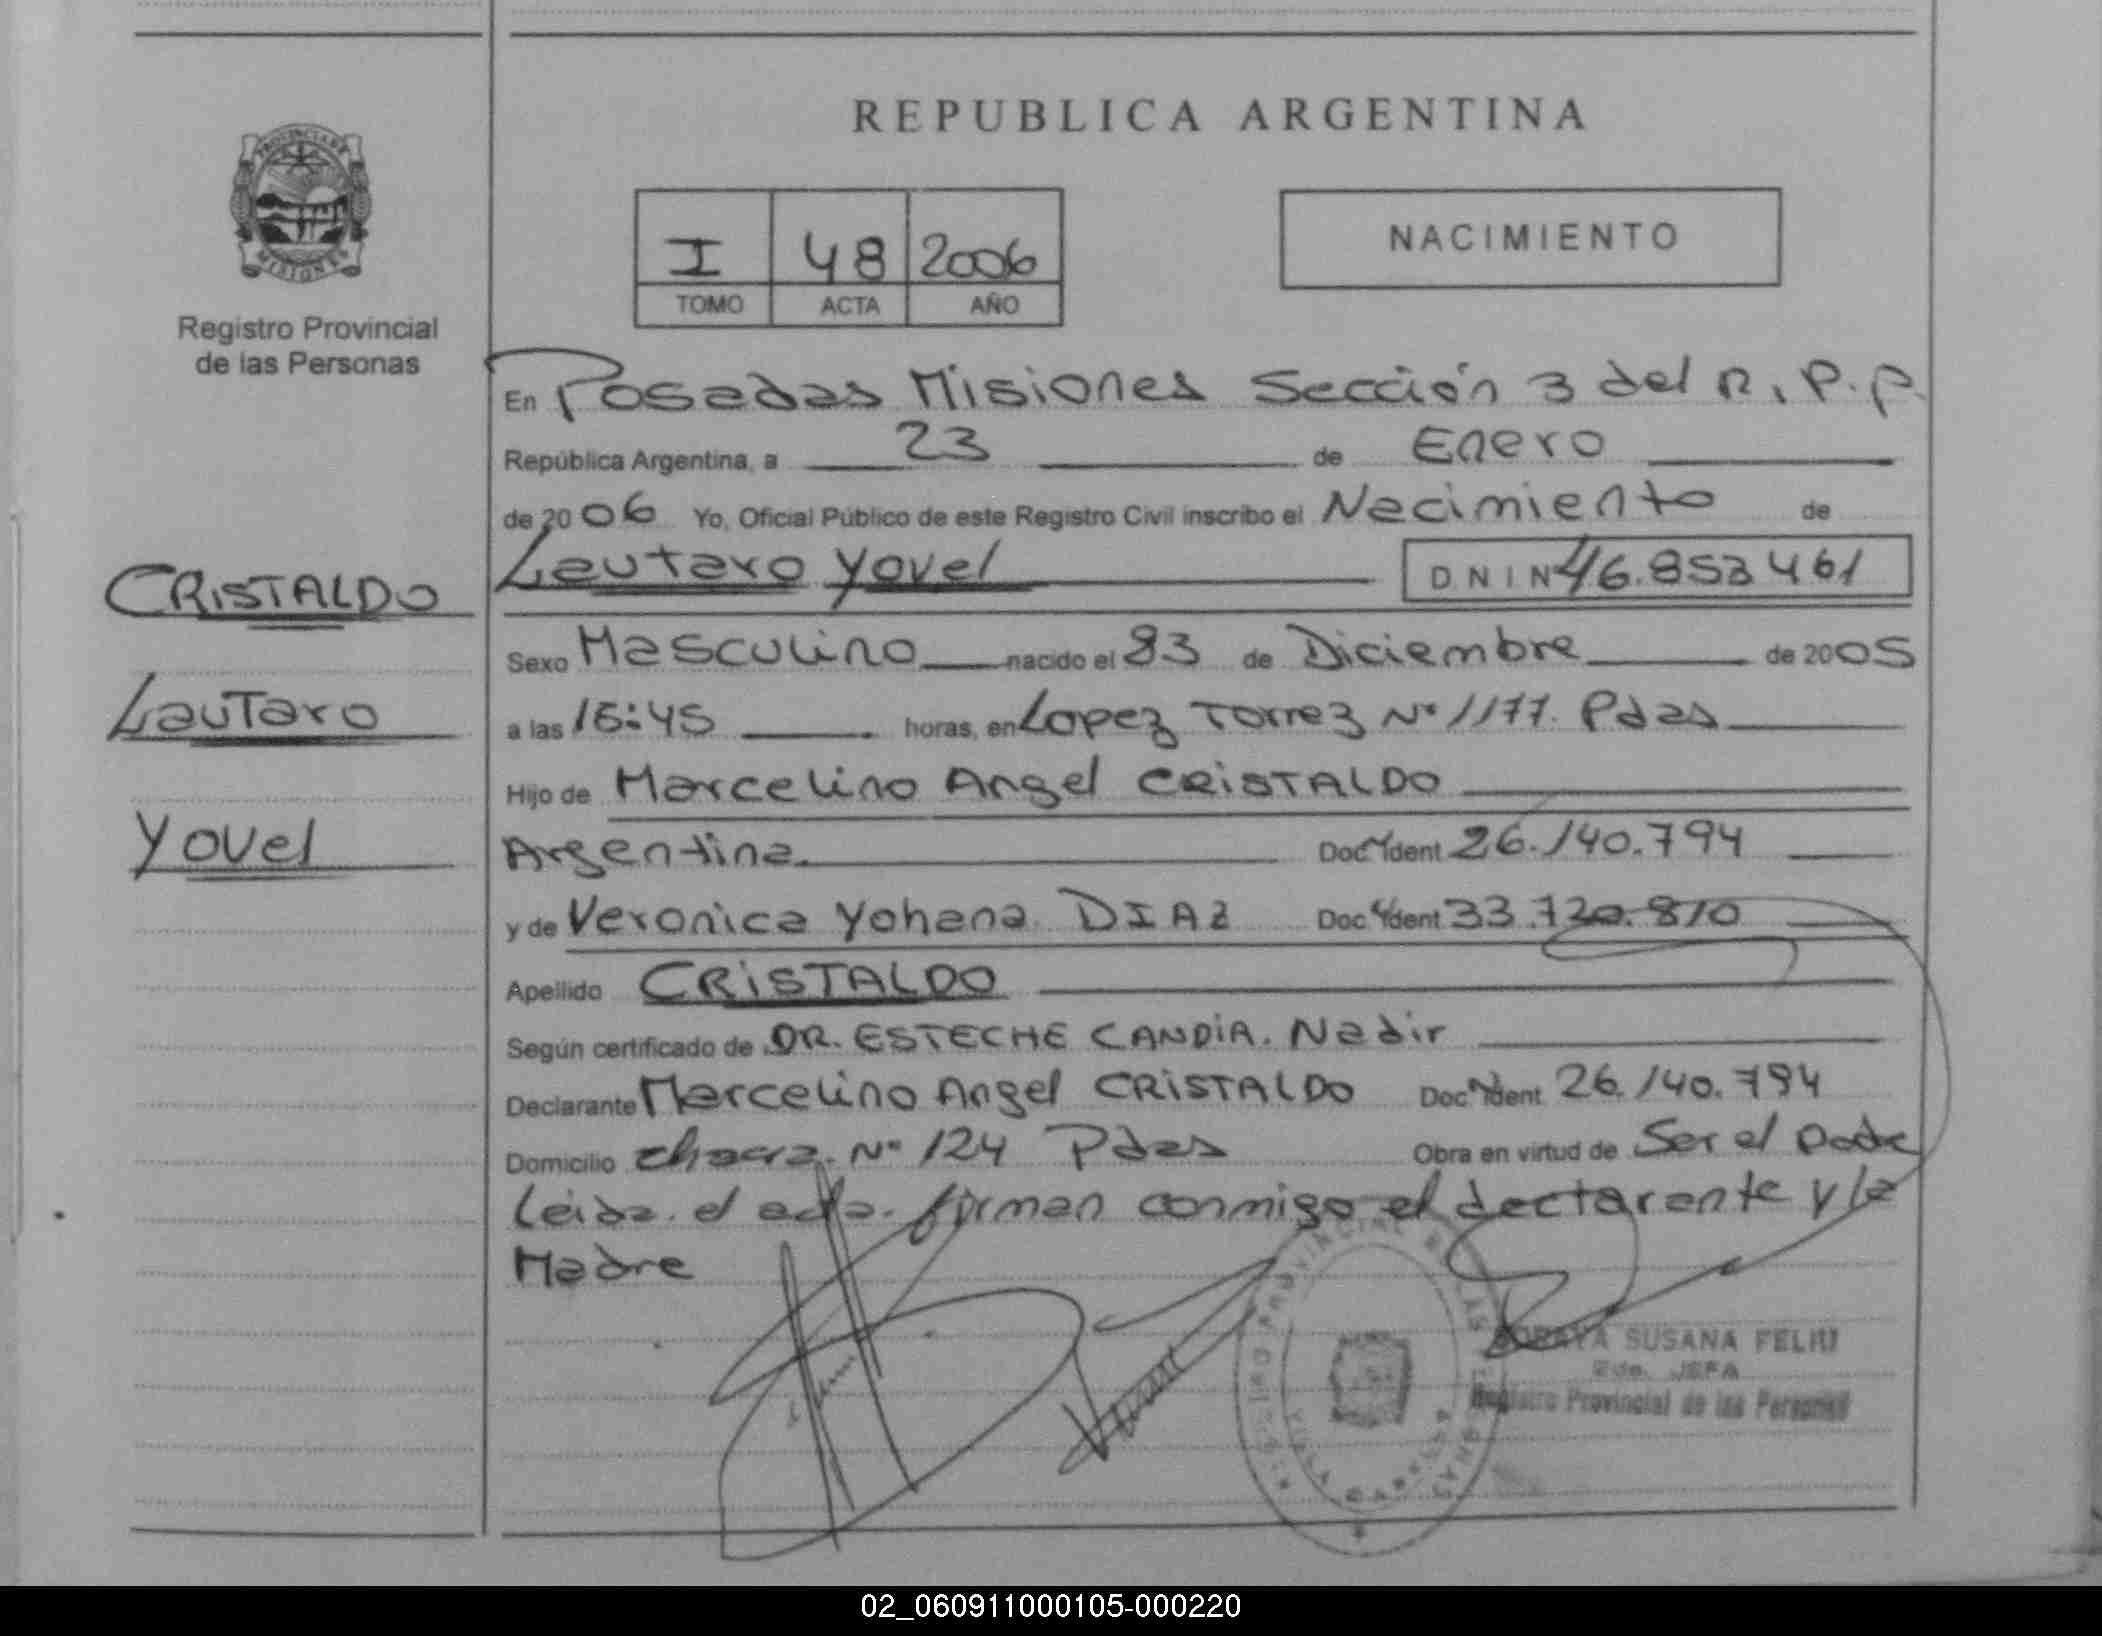 REPUBLICA ARGENTINA
PROVINCIA DE
MISIONES
Registro Provincial
de las Personas
I 48 2006
TOMO ACTA AÑO
NACIMIENTO
En Posadas Misiones Sección 3 del R.P.P.
República Argentina, a 23 de Enero
de 2006 Yo, Oficial Público de este Registro Civil inscribo el Nacimiento de
CRISTALDO
Lautaro Yovel DNI Nº 46.853461
Sexo Masculino nacido el 23 de Diciembre de 2005
Lautaro
a las 16:45 horas, en Lopez Torrez Nº 1177. Pdas
Hijo de Marcelino Angel CRISTALDO
Yovel
Argentina. Doc. Ident 26.140.794
y de Veronica Yohana DIAZ Doc. Ident 33.720.810
Apellido CRISTALDO
Según certificado de DR. ESTECHE CANDIA. Nadir
Declarante Marcelino Angel CRISTALDO Doc. Ident 26.140.794
Domicilio chacra Nº 124 Pdas Obra en virtud de Ser el padre
Leida el acta firman conmigo el declarante y la
Madre
SORAYA SUSANA FELIU
JEFA
Registro Provincial de las Personas
02_060911000105-000220